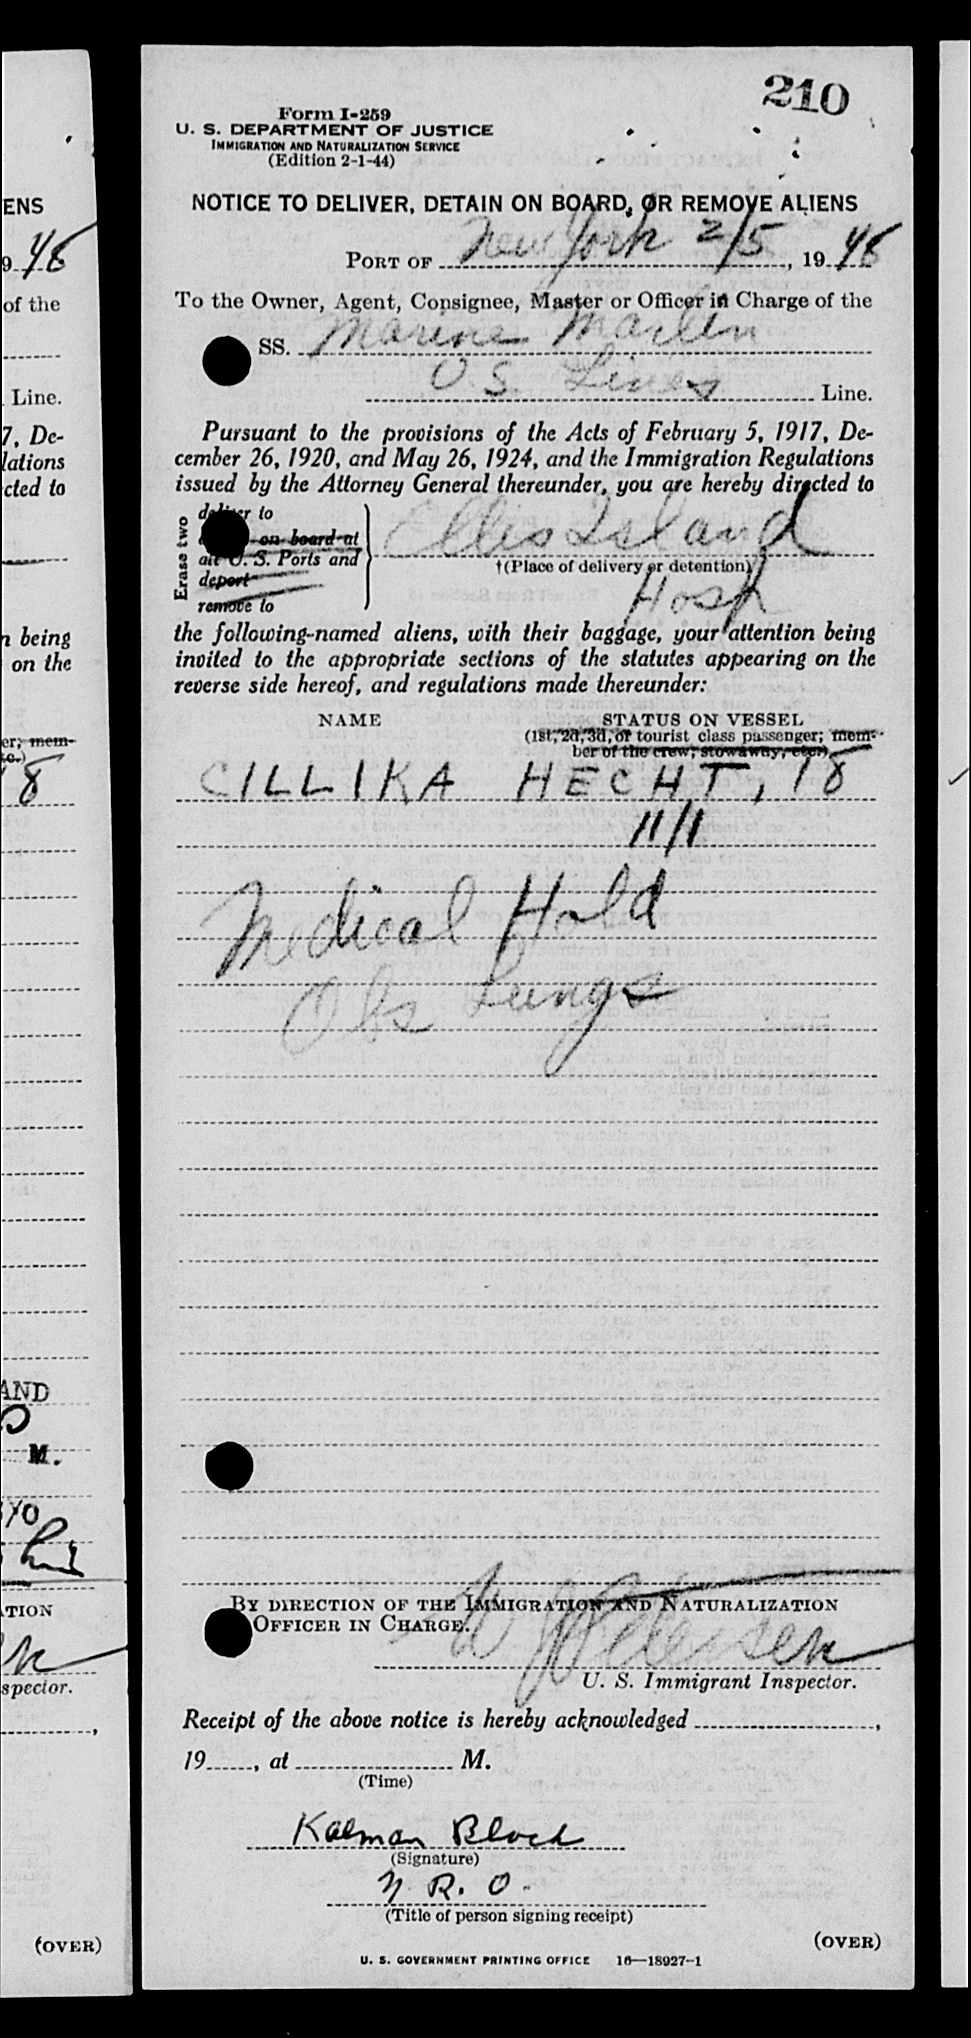 210
Form I-259
U. S. DEPARTMENT OF JUSTICE
IMMIGRATION AND NATURALIZATION SERVICE
(Edition 2-1-44)
NOTICE TO DELIVER, DETAIN ON BOARD, OR REMOVE ALIENS
PORT OF New York 2/5, 1948
To the Owner, Agent, Consignee, Master or Officer in Charge of the
SS. Marine Marlin
U.S. Lines Line.
Pursuant to the provisions of the Acts of February 5, 1917, De-
cember 26, 1920, and May 26, 1924, and the Immigration Regulations
issued by the Attorney General thereunder, you are hereby directed to
Erase two
deliver to
on board at
all U. S. Ports and
deport
remove to
Ellis Island
†(Place of delivery or detention)
Hosp
the following-named aliens, with their baggage, your attention being
invited to the appropriate sections of the statutes appearing on the
reverse side hereof, and regulations made thereunder:
NAME STATUS ON VESSEL
(1st, 2d, 3d, or tourist class passenger; mem-
ber of the crew; stowaway, etc.)
CILLIKA HECHT, 18
11/1
Medical Hold
Obs Lungs
BY DIRECTION OF THE IMMIGRATION AND NATURALIZATION
OFFICER IN CHARGE.
U. S. Immigrant Inspector.
Receipt of the above notice is hereby acknowledged ,
19 , at M.
(Time)
Kalman Block
(Signature)
N. R. O.
(Title of person signing receipt)
(OVER)
U. S. GOVERNMENT PRINTING OFFICE 16—18927-1
ENS
9 48
of the
Line.
7, De-
lations
cted to
n being
on the
er; mem-
tc.)
18
AND
M.
TION
spector.
,
(OVER)